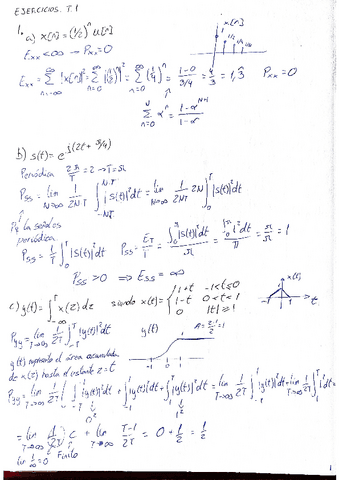 EJERCICIOS. T.1
1. a) x[n] = (1/2)^n u[n]
x[n]
E_xx < ∞ → P_xx = 0
E_xx = Σ_{n=-∞}^{∞} |x[n]|² = Σ_{n=0}^{∞} |(1/2)^n|² = Σ_{n=0}^{∞} (1/4)^n = (1-0)/(3/4) = 4/3 = 1,3 P_xx = 0
Σ_{n=0}^{N} α^n = (1-α^{N+1})/(1-α)
b) s(t) = e^{j(2t + π/4)}
Periódica 2π/T = 2 → T = π
P_ss = lim_{N→∞} 1/(2NT) ∫_{-NT}^{NT} |s(t)|² dt = lim_{N→∞} 1/(2NT) 2N ∫_0^T |s(t)|² dt
la señal es
periódica
P_ss = 1/T ∫_0^T |s(t)|² dt P_ss = E_T/T = ∫_0^π |s(t)|² dt / π = ∫_0^π 1² dt / π = π/π = 1
P_ss > 0 ⇒ E_ss = ∞
c) y(t) = ∫_{-∞}^{t} x(z) dz siendo x(t) = { 1+t -1<t≤0
1-t 0<t<1
0 |t|≥1
x(t)
t
P_yy = lim_{T→∞} 1/2T ∫_{-T}^{T} |y(t)|² dt y(t) A = 2·1/2 = 1
-1 0 1
y(t) representa el área acumulada
de x(z) hasta el instante z = t
P_yy = lim_{T→∞} 1/2T ( ∫_{-T}^{-1} |y(t)|² dt + ∫_{-1}^{1} |y(t)|² dt + ∫_1^T |y(t)|² dt ) = lim_{T→∞} 1/2T ∫_{-1}^{1} |y(t)|² dt + lim_{T→∞} 1/2T ∫_1^T 1² dt =
= lim_{T→∞} 1/2T C + lim_{T→∞} (T-1)/2T = 0 + 1/2 = 1/2
lim 1/∞ = 0 Finito